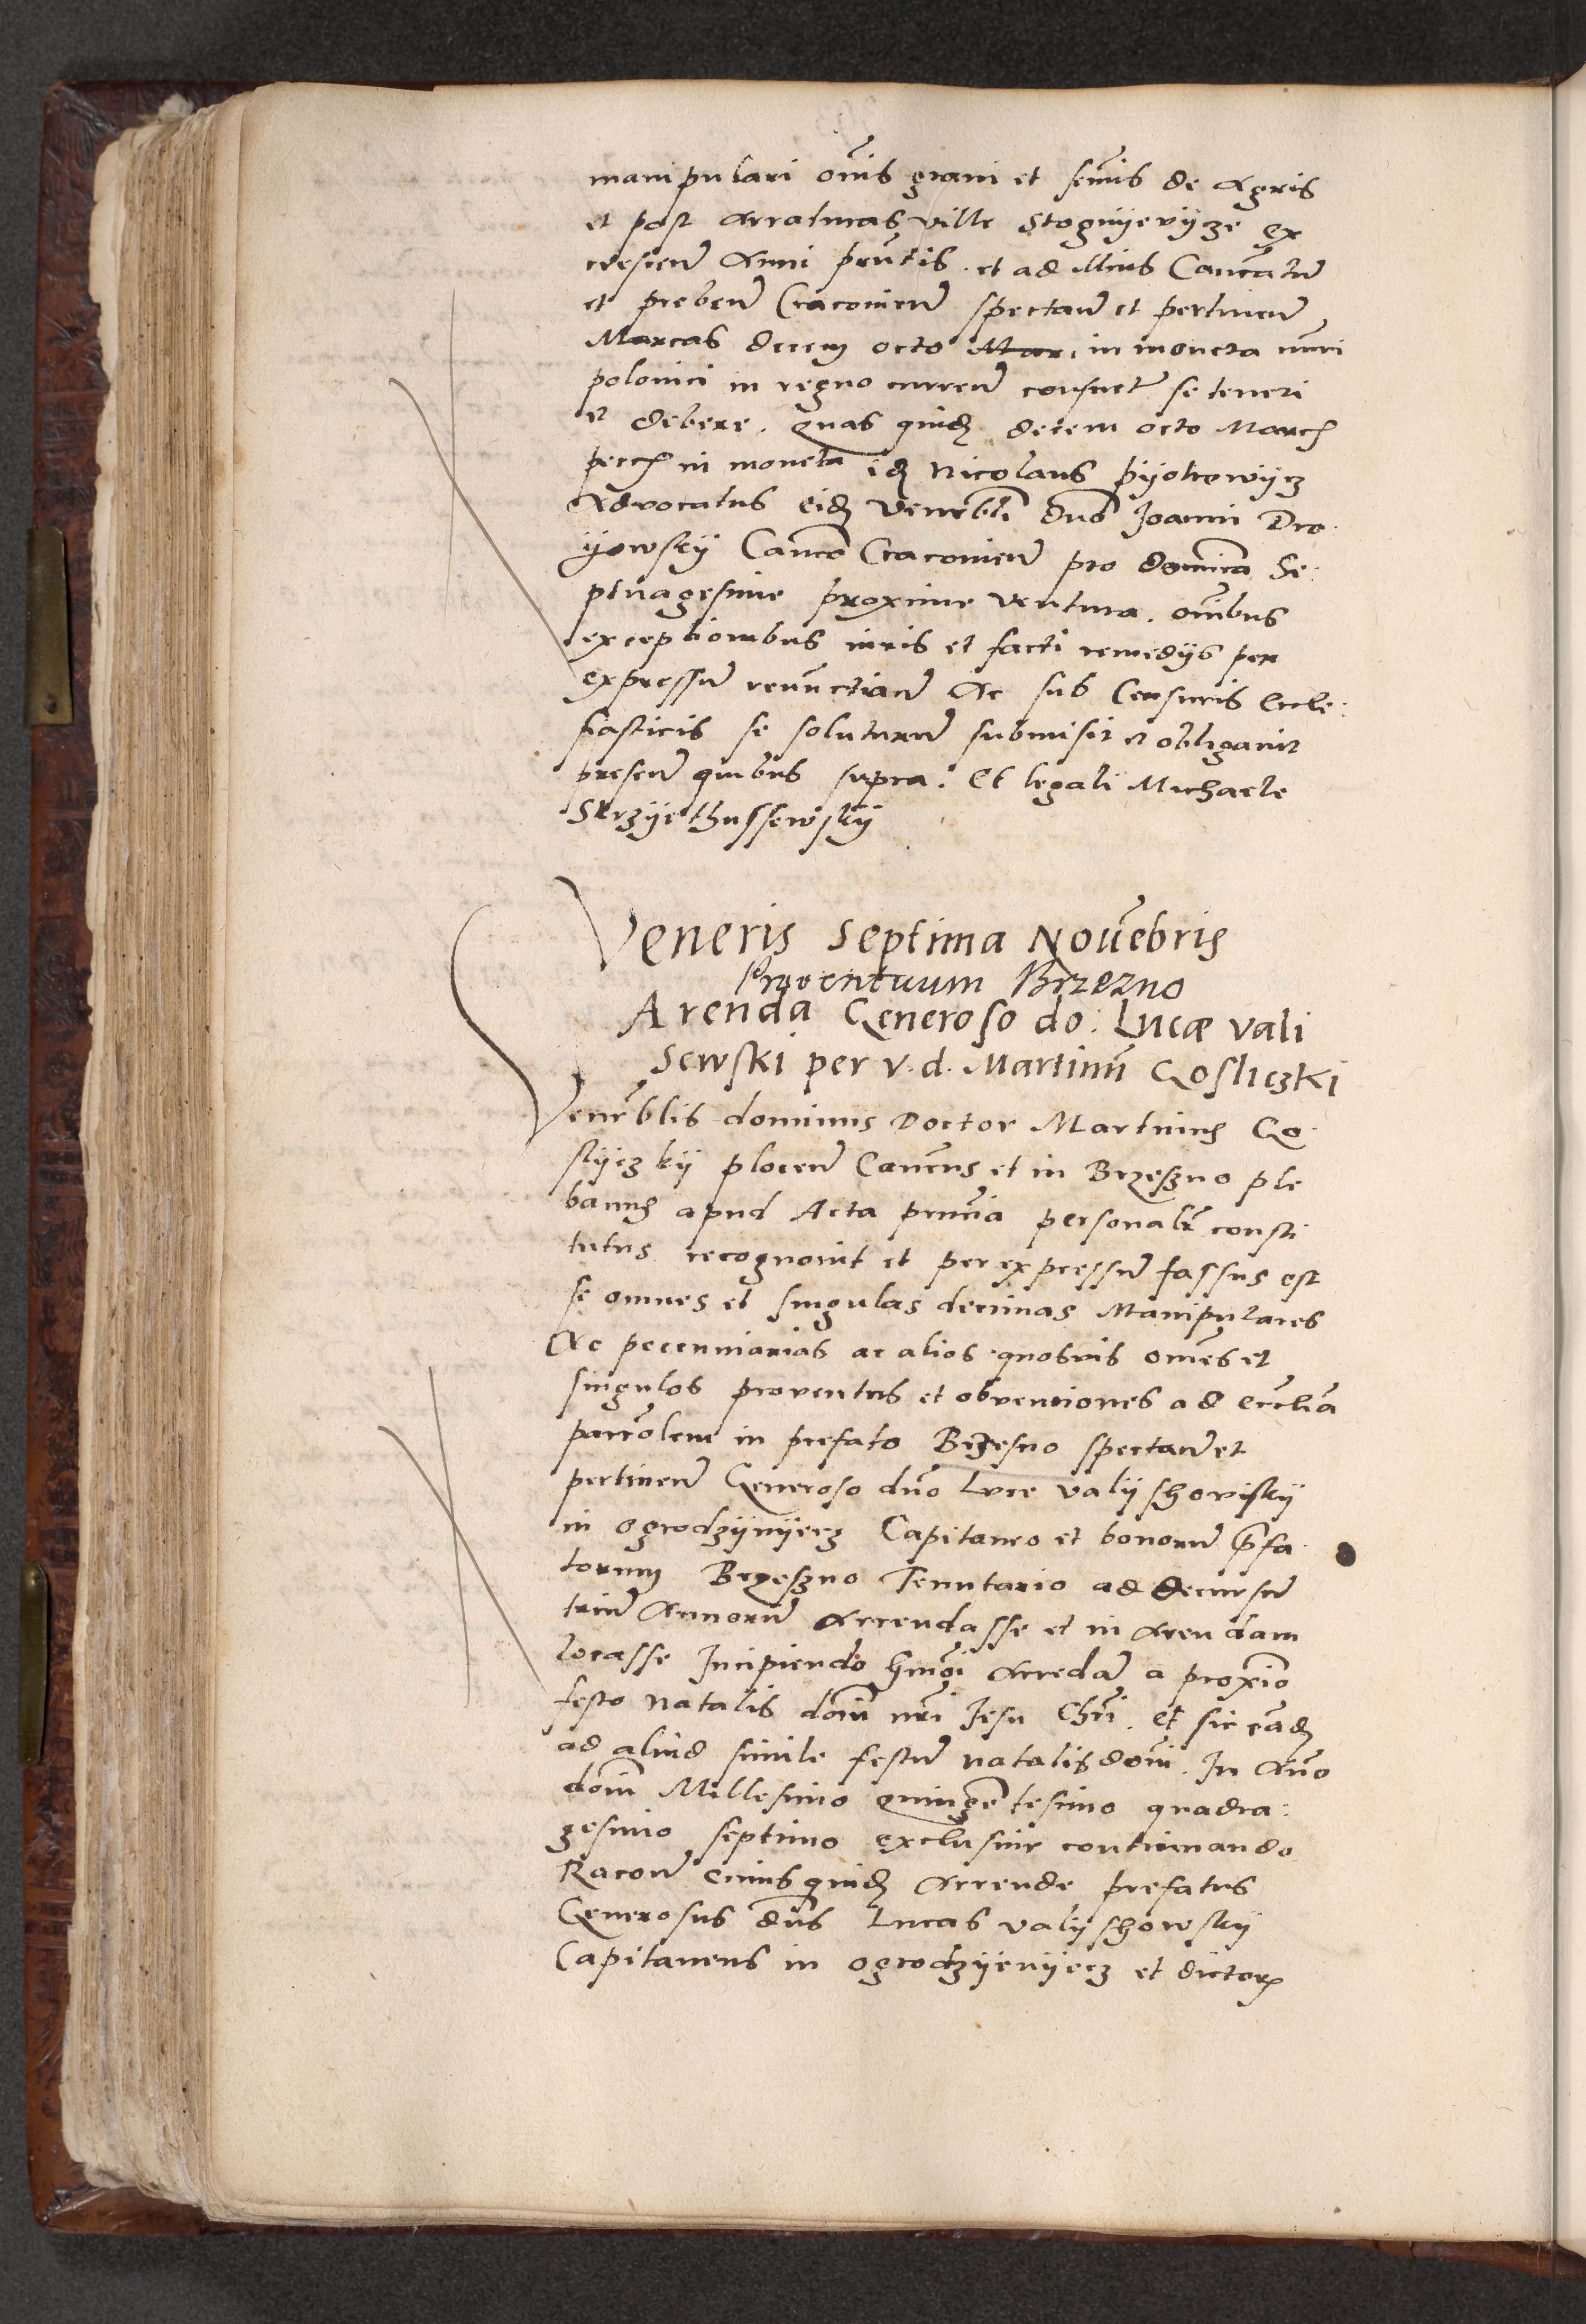 manipulari om̄is grani et sem̄is de Agris
et post Arraturas Ville Stogniyevÿcze Ex
cresceñ Anni pr̄ntis. et ad illius Cano͞catū
et prebeñ Cracovieñ spectañ et pertineñ
Marcas decem octo Mar. in moneta nūri
polonici in regno curreñ consuet̄ se teneri
et debere. Quas quidē decem octo March
pecch in moneta idē Nicolaus Pÿotrowÿcz
Advocatus eidē Venerbli Dn̄o Joanni Dro:
ÿowskÿ Can̄co Cracovieñ pro dominica Se:
ptuagesime proxime ventura. om̄ibus
exceptionibus iuris et facti remedÿs per
expressū renūctiañ Ac sub Censuris Eccle:
siasticis se soluturū submisit et obligavit
preseñ quibus supra. Et legali Michaele
Skrzÿethussewskÿ
Veneris Septima Nov̄ebris
Proventuum Brzezno
Arenda Generoso do: Lucæ Vali
sewski per v. d. Martinū Gosliczki
Venerblis dominus Doctor Martinus Go
slÿczkÿ ploceñ Can̄cus et in Brzeszno ple
banus apud Acta prn̄cia personalr̄ consti
tutus recognovit et per expressū fassus est
se omnes et singulas decimas Manipulares
Ac pecuniarias ac alios quosvis om̄es et
singulos proventus et obventiones ad eccliā
parro͞lem in prefato Brzesno spectañ et
pertineñ Generoso dn̄o Luce Valÿschovskÿ
in ogrodzÿnÿecz Capitaneo et bonorū p̄fa
torum Brzeszno Tenutario ad decursū
triū Annorū Arrendasse et in Arendam
locasse Incipiendo hmōi Arredā a proxīo
festo natalis don̄i nr̄i Jesu Chr̄i. et sic eādē
ad aliud simile festū natalis don̄i. In An̄o
don̄i Millesimo quingētesimo quadra:
gesimo septimo exclusive continuando
Racōne cuiusquidē Arrende prefatus
Generosus dn̄s Lucas Valÿschowskÿ
Capitaneus in ogrodzÿenÿecz et dictorꝝ